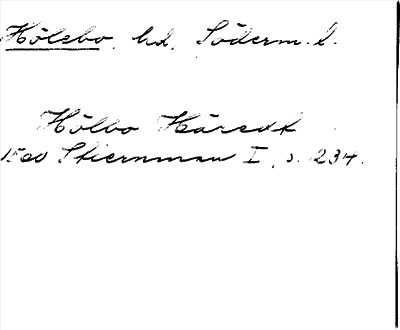 Hölebo hd, Söderm. l.
Hölbo Häredt
1500 Stiernman I, s. 234.